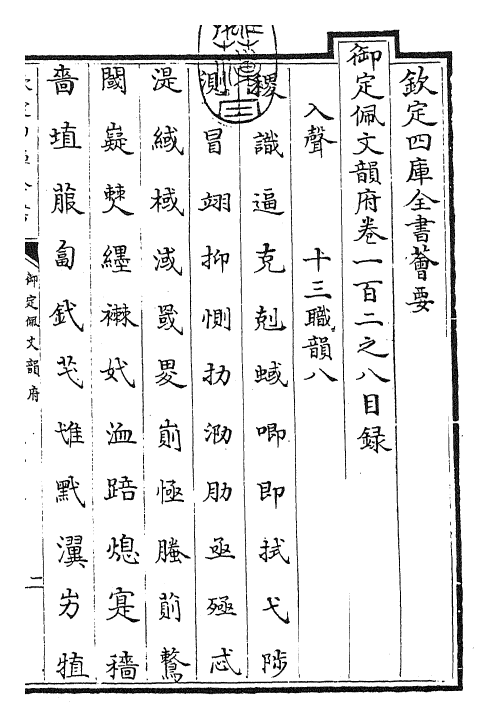 欽定四庫全書薈要
御定佩文韻府卷一百二之八目録
入聲 十三職韻八
稷識逼克剋蜮唧即拭弋陟
測冒翊抑惻扐泐肋亟殛忒
湜緎棫淢罭畟萴恆螣萴鷘
閾嶷僰纆襋妷洫踣熄寔穡
嗇埴菔匐釴芅堆㱄瀷屴犆
御定佩文韻府
二